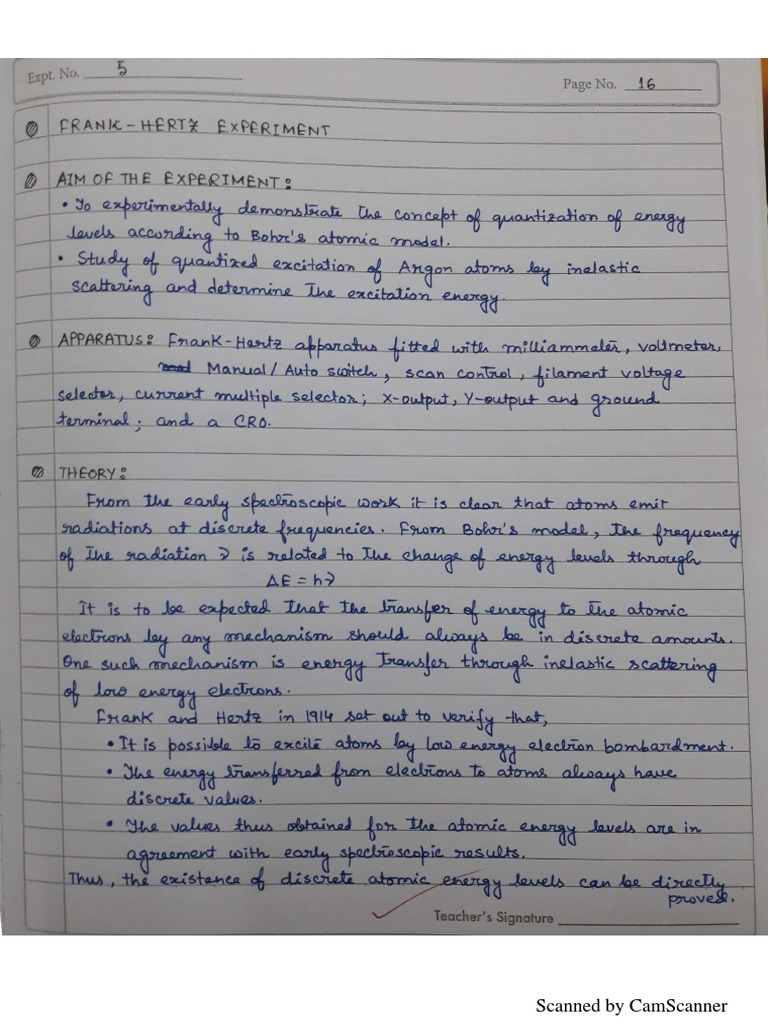 Expt. No. 5
Page No. 16
FRANK-HERTZ EXPERIMENT
AIM OF THE EXPERIMENT:
• To experimentally demonstrate the concept of quantization of energy
levels according to Bohr's atomic model.
• Study of quantized excitation of Argon atoms by inelastic
scattering and determine the excitation energy.
APPARATUS: Frank-Hertz apparatus fitted with milliammeter, voltmeter,
Manual/Auto switch, scan control, filament voltage
selector, current multiple selector; X-output, Y-output and ground
terminal; and a CRO.
THEORY:
From the early spectroscopic work it is clear that atoms emit
radiations at discrete frequencies. From Bohr's model, the frequency
of the radiation ν is related to the change of energy levels through
ΔE = hν
It is to be expected that the transfer of energy to the atomic
electrons by any mechanism should always be in discrete amounts.
One such mechanism is energy transfer through inelastic scattering
of low energy electrons.
Frank and Hertz in 1914 set out to verify that,
• It is possible to excite atoms by low energy electron bombardment.
• The energy transferred from electrons to atoms always have
discrete values.
• The values thus obtained for the atomic energy levels are in
agreement with early spectroscopic results.
Thus, the existence of discrete atomic energy levels can be directly
proved.
Teacher's Signature
Scanned by CamScanner